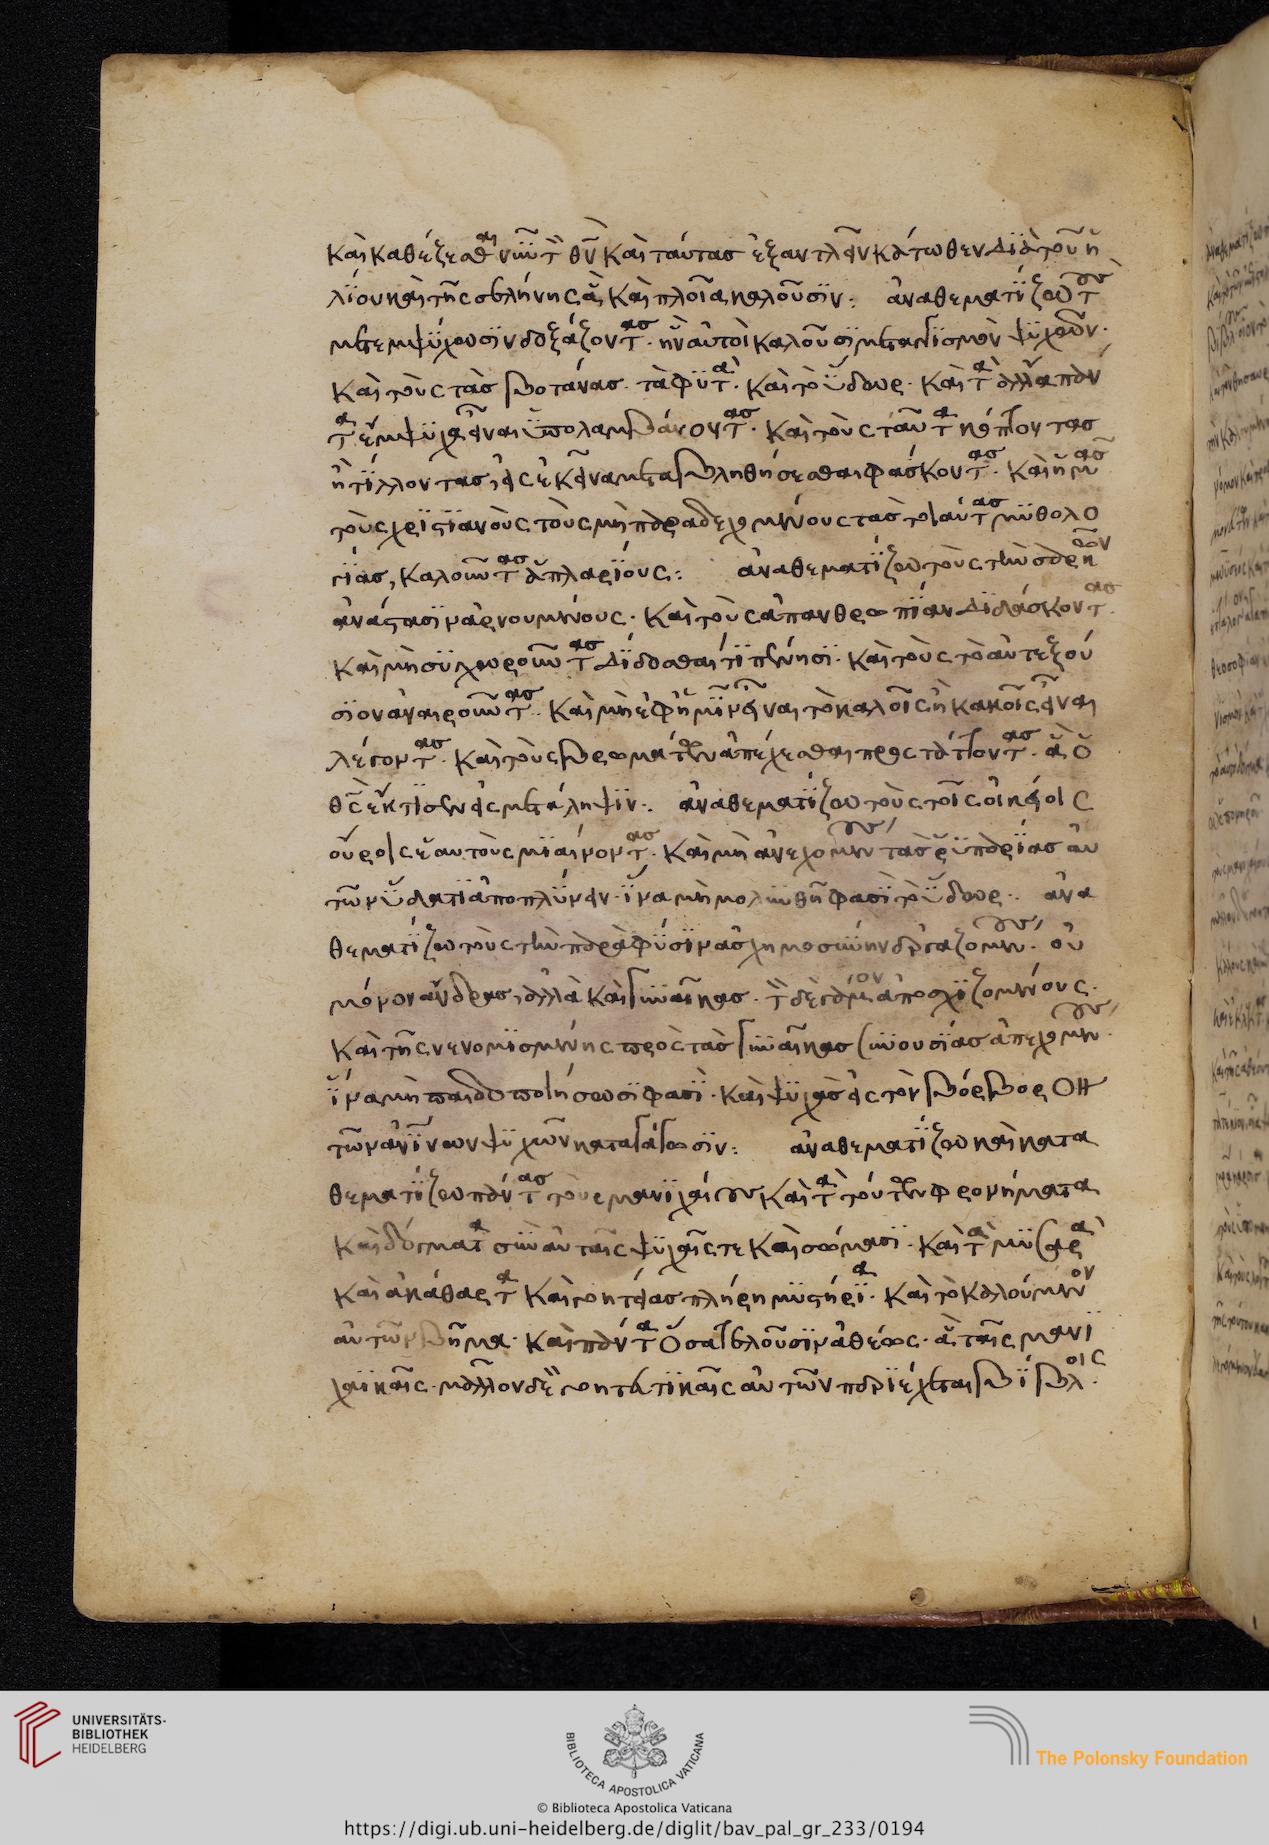 καὶ καθέζεσθαι νῦν τ θν καὶ ταύτας ἐξαντλεῖν κάτωθεν διὰ τοῦ ἡ
λίου καὶ τῆς σελήνης ἃ καὶ πλοῖα καλοῦσιν: ἀναθεματίζω τοὺς
μετεμψύχωσιν δοξάζοντας· ἣν αὐτοὶ καλοῦσι μεταγγισμὸν ψυχῶν·
καὶ τοὺς τὰς βοτάνας· τὰ φυτὰ· καὶ τὸ ὕδωρ· καὶ τὰ ἄλλα πάν
τα ἔμψυχα εἶναι ὑπολαμβάνοντας· καὶ τοὺς ταῦτα κόπτοντας
ἢ τίλλοντας, εἰς ἐκεῖνα μεταβληθήσεσθαι φάσκοντας· καὶ ἡμᾶς
τοὺς χριστιανοὺς τοὺς μὴ παραδεχομένους τὰς τοιαύτας μυθολο
γίας, καλοῦντας ἁπλαρίους: ἀναθεματίζω τοὺς τὴν σαρκῶν
ἀνάστασιν ἀρνουμένους· καὶ τοὺς ἀπανθρωπίαν διδάσκοντας·
καὶ μὴ συγχωροῦντας δίδοσθαί τι πένησι· καὶ τοὺς τὸ αὐτεξού
σιον ἀναιροῦντας· καὶ μὴ ἐφ' ἡμῖν εἶναι τὸ καλοῖς ἢ κακοῖς εἶναι
λέγοντας· καὶ τοὺς βρωμάτων ἀπέχεσθαι προστάττοντας· ἃ ὁ
θς ἔκτισεν εἰς μετάληψιν: ἀναθεματίζω τοὺς τοῖς οἰκείοις
οὔροις ἑαυτοὺς μιαίνοντας· καὶ μὴ ἀνεχομένους τὰς ῥυπαρίας αὐ
τῶν ὕδατι ἀποπλύνειν· ἵνα μὴ μολυνθῇ φασὶ τὸ ὕδωρ: ἀνα
θεματίζω τοὺς τὴν παρὰ φύσιν ἀσχημοσύνην ἐργαζομένους· οὐ
μόνον ἄνδρας, ἀλλὰ καὶ γυναῖκας· τὸν δὲ γάμον ἀποσχιζομένους·
καὶ τῆς νενομισμένης πρὸς τὰς γυναῖκας συνουσίας ἀπεχομένους·
ἵνα μὴ παιδοποιήσωσι φασὶ· καὶ ψυχὰς εἰς τὸν βόρβορον
τῶν ἀνινων ψυχῶν καταγάγωσιν: ἀναθεματίζω καὶ κατα
θεματίζω πάντας τοὺς μανιχαίους καὶ τὰ τούτων φρονήματα
καὶ δόγματα σὺν αὐταῖς ψυχαῖς τε καὶ σώμασι· καὶ τὰ μυσαρὰ
καὶ ἀκάθαρτα καὶ γοητείας πλήρη μυστήρια· καὶ τὸ καλούμενον
αὐτῶν βῆμα· καὶ πάντα ὅσα τελοῦσιν ἀθέως· ἃ ταῖς μανι
χαϊκαῖς· μᾶλλον δὲ γοητευτικαῖς αὐτῶν περιέχεται βίβλοις·
UNIVERSITÄTS-
BIBLIOTHEK
HEIDELBERG
BIBLIOTECA APOSTOLICA VATICANA
The Polonsky Foundation
© Biblioteca Apostolica Vaticana
https://digi.ub.uni-heidelberg.de/diglit/bav_pal_gr_233/0194